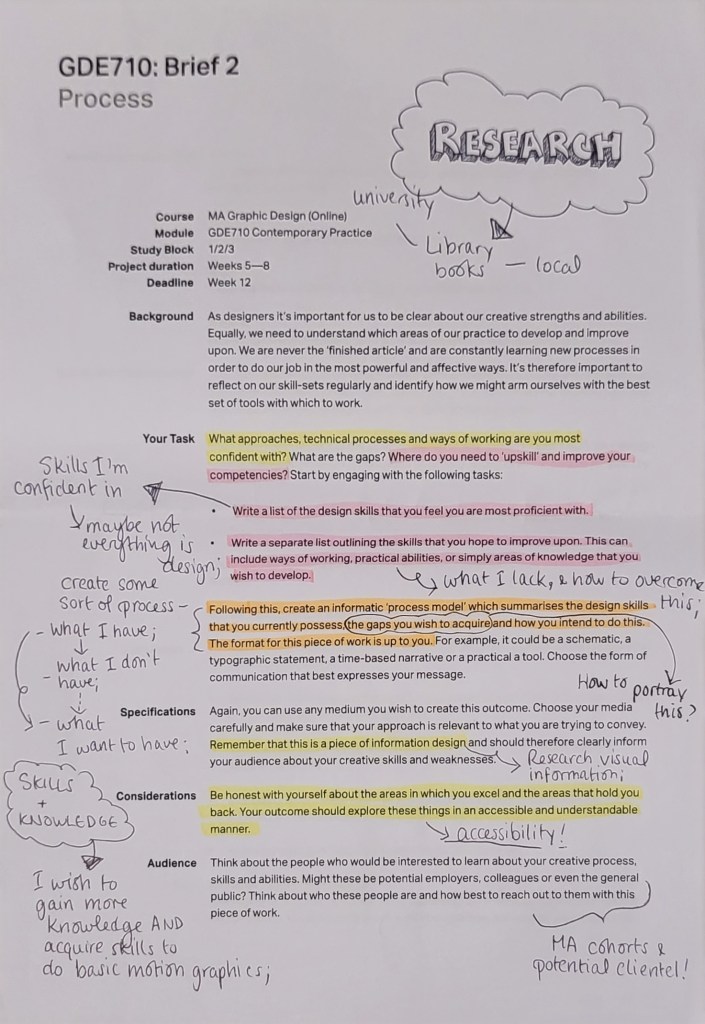 GDE710: Brief 2
Process
RESEARCH
university
Library
books — local
Course MA Graphic Design (Online)
Module GDE710 Contemporary Practice
Study Block 1/2/3
Project duration Weeks 5—8
Deadline Week 12
Background As designers it's important for us to be clear about our creative strengths and abilities.
Equally, we need to understand which areas of our practice to develop and improve
upon. We are never the 'finished article' and are constantly learning new processes in
order to do our job in the most powerful and affective ways. It's therefore important to
reflect on our skill-sets regularly and identify how we might arm ourselves with the best
set of tools with which to work.
Your Task What approaches, technical processes and ways of working are you most
confident with? What are the gaps? Where do you need to 'upskill' and improve your
competencies? Start by engaging with the following tasks:
Skills I'm
confident in
maybe not
everything is
design;
• Write a list of the design skills that you feel you are most proficient with.
• Write a separate list outlining the skills that you hope to improve upon. This can
include ways of working, practical abilities, or simply areas of knowledge that you
wish to develop.
what I lack, & how to overcome
this;
create some
sort of process –
- what I have;
what I don't
- have;
- what
I want to have;
Following this, create an informatic 'process model' which summarises the design skills
that you currently possess, the gaps you wish to acquire and how you intend to do this.
The format for this piece of work is up to you. For example, it could be a schematic, a
typographic statement, a time-based narrative or a practical a tool. Choose the form of
communication that best expresses your message.
How to portray
this?
Specifications Again, you can use any medium you wish to create this outcome. Choose your media
carefully and make sure that your approach is relevant to what you are trying to convey.
Remember that this is a piece of information design and should therefore clearly inform
your audience about your creative skills and weaknesses.
Research visual
information;
SKILLS
+
KNOWLEDGE
Considerations Be honest with yourself about the areas in which you excel and the areas that hold you
back. Your outcome should explore these things in an accessible and understandable
manner.
accessibility!
Audience Think about the people who would be interested to learn about your creative process,
skills and abilities. Might these be potential employers, colleagues or even the general
public? Think about who these people are and how best to reach out to them with this
piece of work.
I wish to
gain more
knowledge AND
acquire skills to
do basic motion graphics;
MA cohorts &
potential clientel!